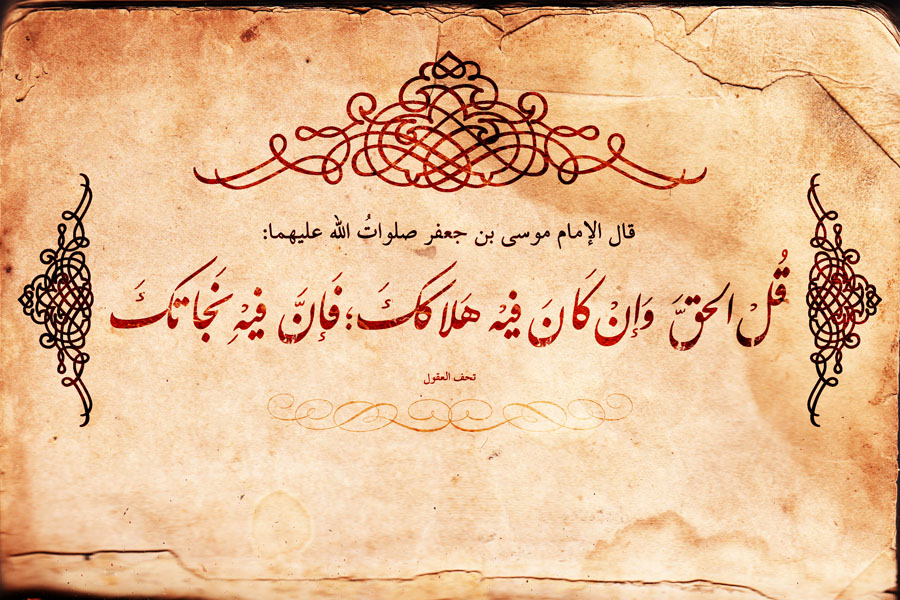 قال الإمام موسى بن جعفر صلواتُ الله عليهما:
قُلْ الحقَّ وَإنْ كَانَ فيْهِ هَلاككَ؛ فَإنَّ فيْهِ نَجَاتكَ
تحف العقول